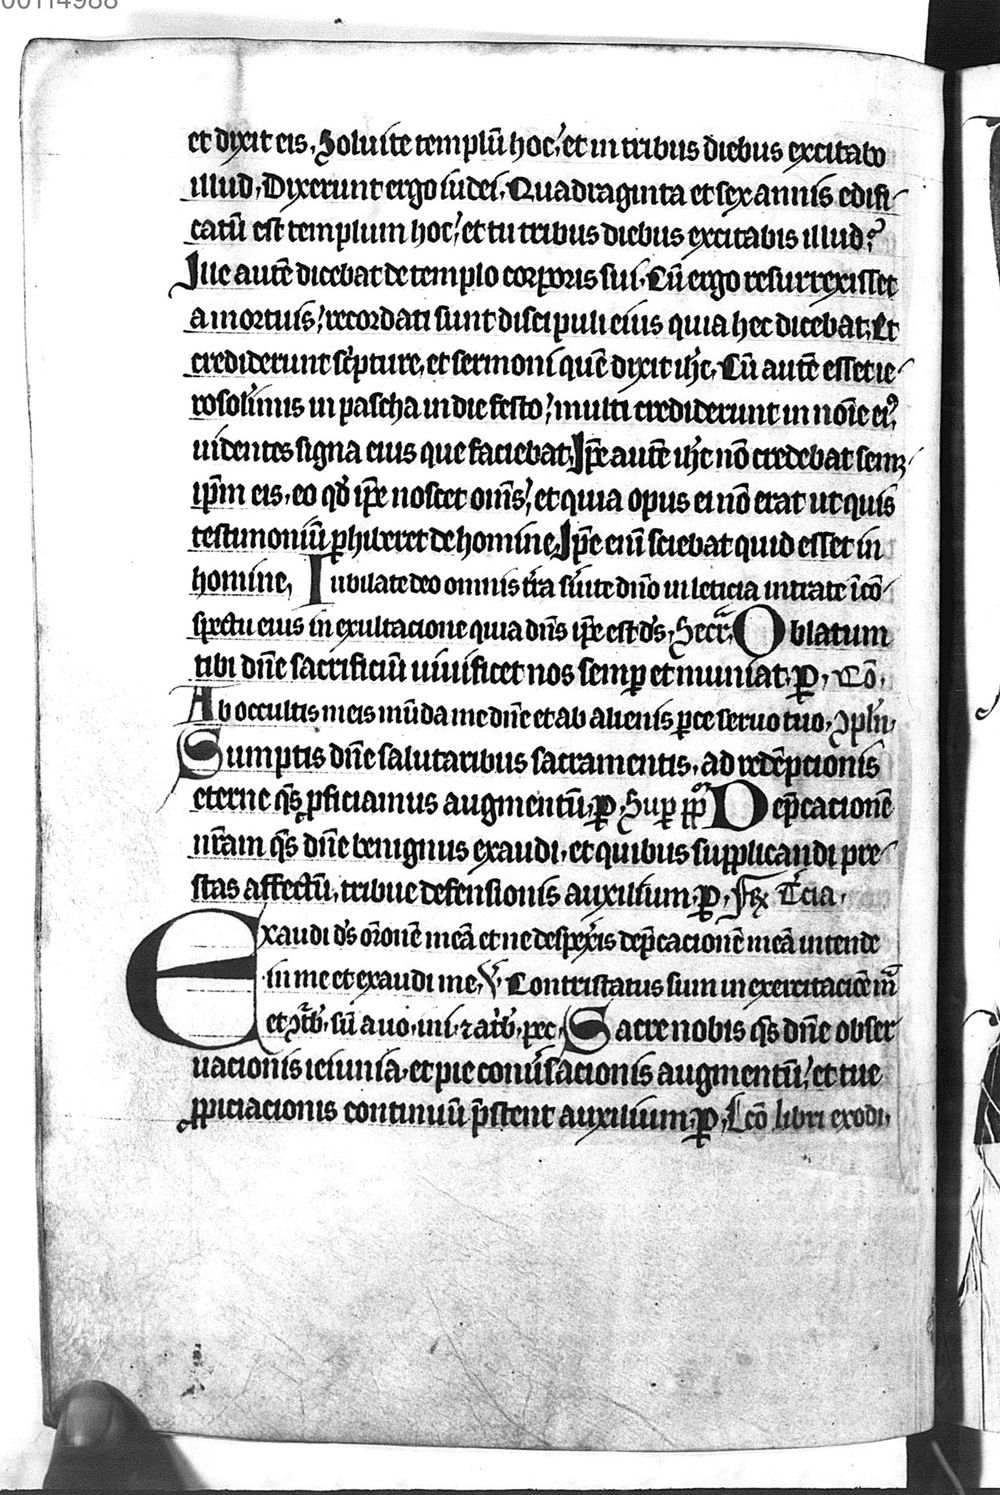 00114988
et dixit eis. Soluite templū hoc: et in tribus diebus excitabo
illud. Dixerunt ergo iudei. Quadraginta et sex annis edifi
catū est templum hoc: et tu tribus diebus excitabis illud?
Ille autē dicebat de templo corporis sui. Cū ergo resurrexisset
a mortuis: recordati sunt discipuli eius quia hec dicebat. Et
crediderunt sc'pture, et sermoni quē dixit ihc. Cū autē esset ie
rosolimis in pascha in die festo: multi crediderunt in noīe ei9
uidentes signa eius que faciebat. Ip̄e autē ihc nō credebat semꝫ
ip̄m eis. eo qd̓ ip̄e noscet om̄s: et quia opus ei nō erat ut quis
testimoniū ꝑhiberet de homine. Ip̄e eni sciebat quid esset in
homine, Iubilate deo omnis t̄ra s'uite dn̄o in leticia intrate ī cō
spectu eius in exultacione quia dn̄s ip̄e est ds̄. Secr. Oblatum
tibi dn̄e sacrificiū uiuificet nos semꝑ et muniat. ꝑ. Cō.
Ab occultis meis mūda me dn̄e et ab alienis ꝑce seruo tuo. ꝯpln̄.
Sumptis dn̄e salutaribus sacramentis. ad redēpcionis
eterne qs̄ ꝓficiamus augmentū. ꝑ. Suꝑ pp̄l̄m Dep̄cacionē
nr̄am qs̄ dn̄e benignus exaudi. et quibus supplicandi pre
stas affectū. tribue defensionis auxilium. ꝑ. Fr̄ T'cia.
Exaudi ds̄ or̄onē meā et ne despex'is dep̄cacionē meā intende
in me et exaudi me. V Contristatus sum in exercitaciōe m̄
et ꝯt'b. sū a uo. ini. ⁊ a t'b. pec. Sacre nobis qs̄ dn̄e obser
uacionis ieiunia. et pie conu'sacionis augmentū: et tue
ꝓpiciacionis continuū p̄stent auxilium. ꝑ. Lc̄o libri exodi.